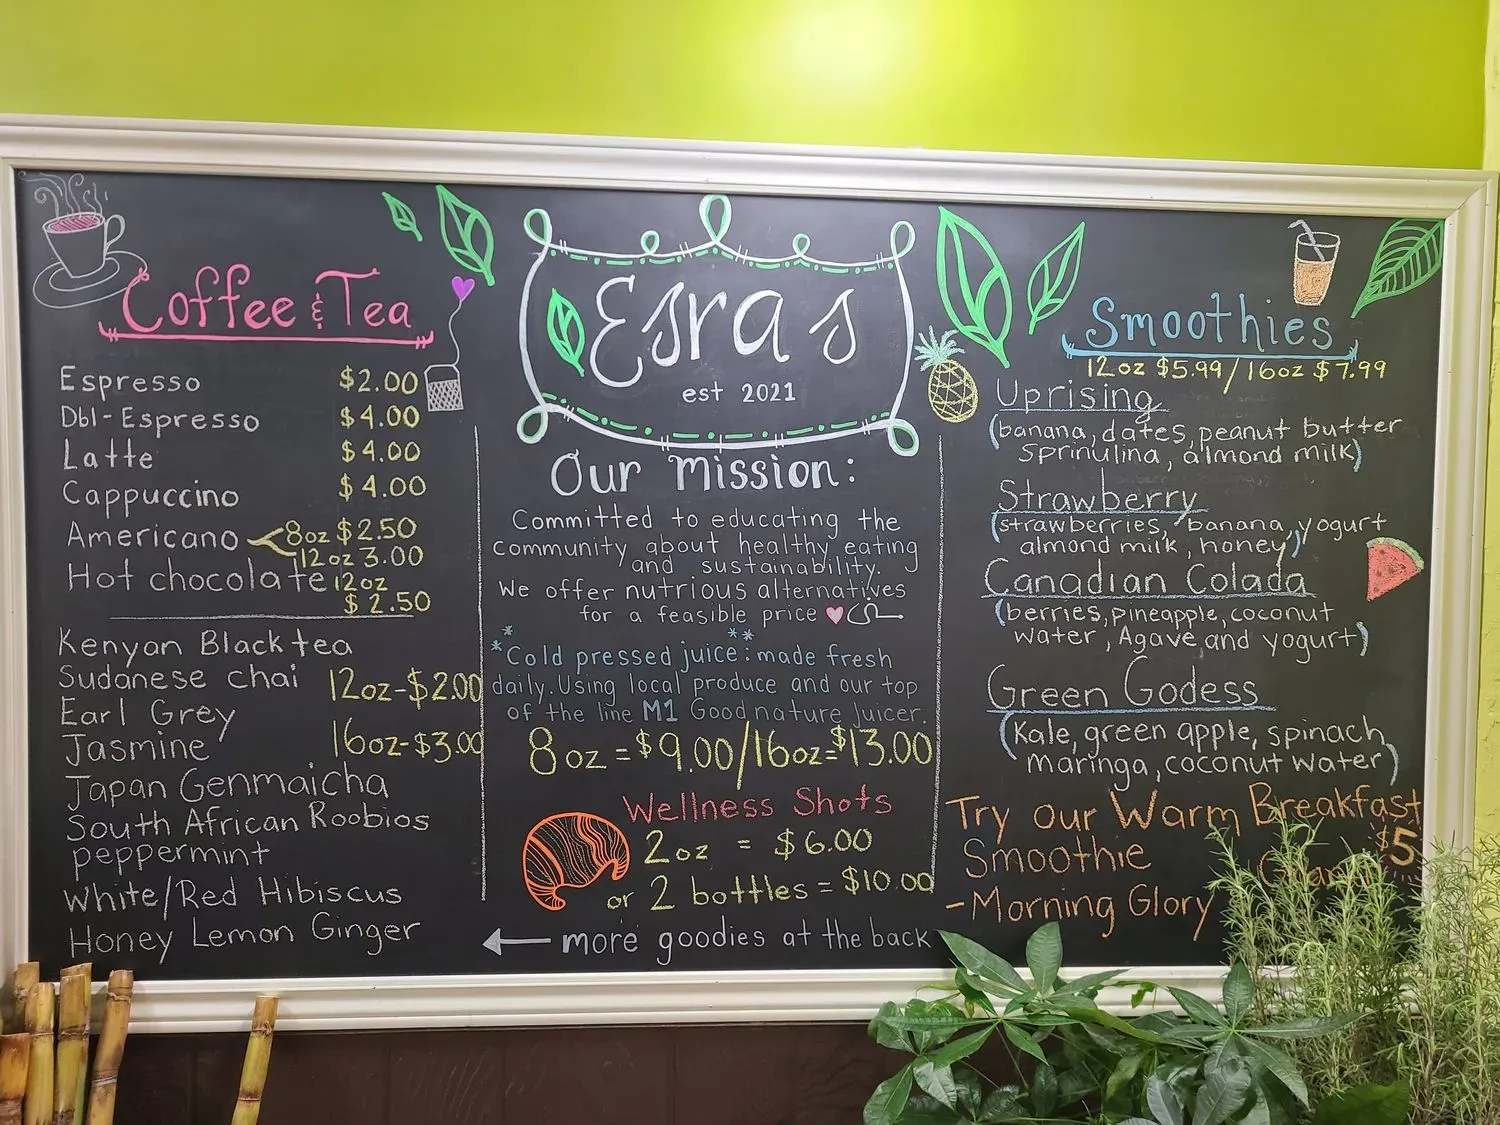 Coffee & Tea
Espresso $2.00
Dbl-Espresso $4.00
Latte $4.00
Cappuccino $4.00
Americano 8oz $2.50
12oz 3.00
Hot chocolate 12oz
$2.50
Kenyan Black tea
Sudanese chai 12oz-$2.00
Earl Grey
Jasmine 16oz-$3.00
Japan Genmaicha
South African Roobios
peppermint
White/Red Hibiscus
Honey Lemon Ginger
Esra's
est 2021
Our Mission:
Committed to educating the
community about healthy eating
and sustainability.
We offer nutrious alternatives
for a feasible price
*Cold pressed juice: made fresh
daily. Using local produce and our top
of the line M1 Goodnature Juicer.
8oz=$9.00/16oz=$13.00
Wellness Shots
2oz = $6.00
or 2 bottles = $10.00
more goodies at the back
Smoothies
12oz $5.99/16oz $7.99
Uprising
(banana, dates, peanut butter
Sprinulina, almond milk)
Strawberry
(strawberries, banana, yogurt
almond milk, honey)
Canadian Colada
(berries, pineapple, coconut
water, Agave and yogurt)
Green Godess
(Kale, green apple, spinach,
maringa, coconut water)
Try our Warm Breakfast
Smoothie $5
-Morning Glory